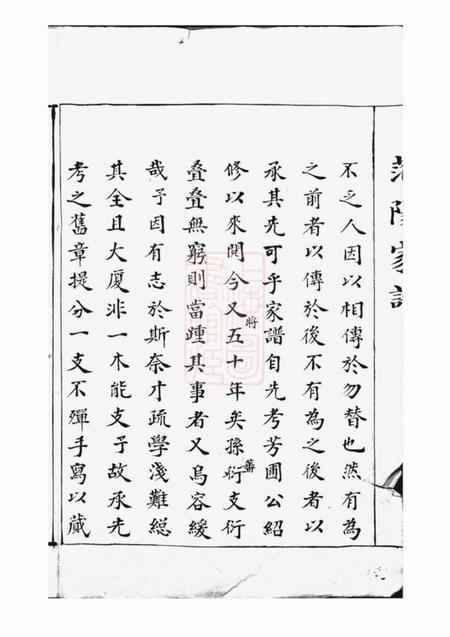 范陽家譜
不乏人因以相傳於勿替也然有為
之前者以傳於後不有為之後者以
承其先可乎家譜自先考芳圃公紹
修以來閱今又將五十年矣孫蕃衍支衍
疊疊無窮則當踵其事者又烏容緩
哉予因有志於斯奈才疏學淺難總
其全且大廈非一木能支予故承先
考之舊章提分一支不殫手寫以藏